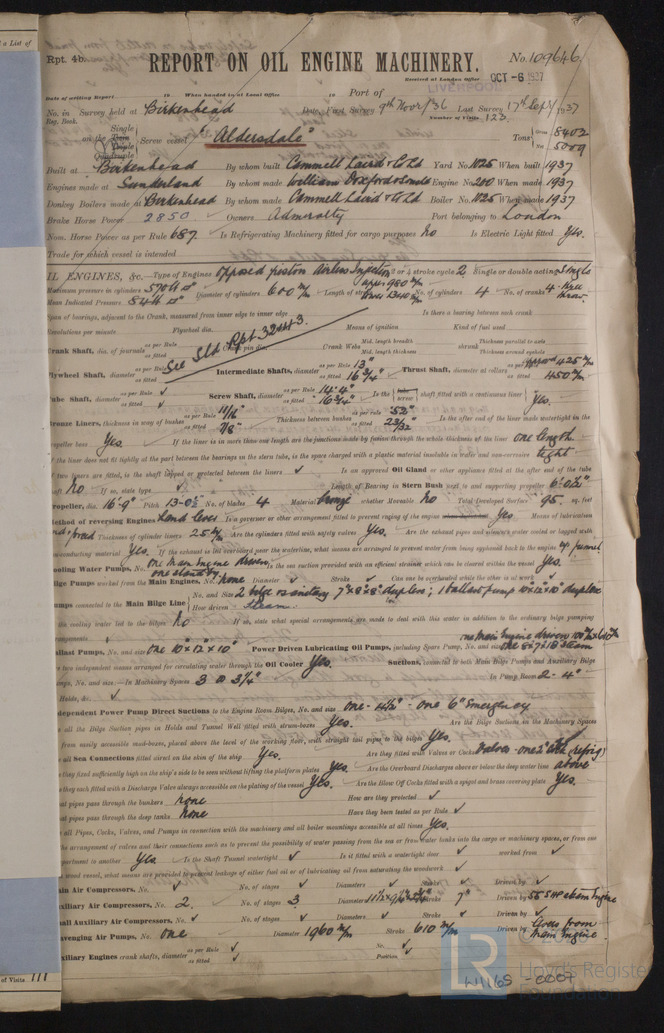 a List of
Rpt. 4b.
REPORT ON OIL ENGINE MACHINERY.
No. 109646
Received at London Office OCT -6 1937
Date of writing Report 19 When handed in at Local Office 19 Port of LIVERPOOL
No. in Survey held at Birkenhead Date, First Survey 9th Novr/36 Last Survey 17th Sept 1937
Reg. Book. Number of Visits 123
on the Single Screw vessel "Aldersdale" Tons Gross 8402
Triple
Quadruple
Built at Birkenhead By whom built Cammell Laird & Co Ld Yard No. 1025 When built 1937
Engines made at Sunderland By whom made William Doxford & Sons Ld Engine No. 200 When made 1937
Donkey Boilers made at Birkenhead By whom made Cammell Laird & Co Ld Boiler No. 1025 When made 1937
Brake Horse Power 2850 Owners Admiralty Port belonging to London
Nom. Horse Power as per Rule 687 Is Refrigerating Machinery fitted for cargo purposes No Is Electric Light fitted Yes.
Trade for which vessel is intended
OIL ENGINES, &c.—Type of Engines opposed piston Airless Injection 2 or 4 stroke cycle 2 Single or double acting Single
Maximum pressure in cylinders 570 Diameter of cylinders 600 m/m Length of stroke upper 980 m/m lower 1340 m/m No. of cylinders 4 No. of cranks 4 three throw
Mean Indicated Pressure 84
Span of bearings, adjacent to the Crank, measured from inner edge to inner edge Is there a bearing between each crank
Revolutions per minute Flywheel dia. Means of ignition Kind of fuel used
Crank Shaft, dia. of journals as per Rule as fitted Crank pin dia. Crank Webs Mid. length breadth Mid. length thickness shrunk Thickness parallel to axis Thickness around eyehole
See Sld Rpt. 32443.
Flywheel Shaft, diameter as per Rule as fitted Intermediate Shafts, diameter as per Rule 13" as fitted 16 3/4" Thrust Shaft, diameter at collars as per Rule 425 m/m as fitted 450 m/m
Tube Shaft, diameter as per Rule as fitted Screw Shaft, diameter as per Rule 14.4" as fitted 16 3/4" Is the tube screw shaft fitted with a continuous liner Yes.
Bronze Liners, thickness in way of bushes as per Rule 11/16" as fitted 7/8" Thickness between bushes as per rule .52" as fitted 23/32" Is the after end of the liner made watertight in the
propeller boss Yes If the liner is in more than one length are the junctions made by fusion through the whole thickness of the liner one length
If the liner does not fit tightly at the part between the bearings in the stern tube, is the space charged with a plastic material insoluble in water and non-corrosive tight
If two liners are fitted, is the shaft lapped or protected between the liners ✓ Is an approved Oil Gland or other appliance fitted at the after end of the tube
No If so, state type ✓ Length of Bearing in Stern Bush next to and supporting propeller
Propeller, dia. 16'-9" Pitch No. of blades 4 Material bronze whether Moveable No Total Developed Surface 95 sq. feet
Method of reversing Engines Hand lever Is a governor or other arrangement fitted to prevent racing of the engine Yes Means of lubrication
forced Thickness of cylinder liners 25 m/m Are the cylinders fitted with safety valves Yes. Are the exhaust pipes and silencers water cooled or lagged with
non-conducting material Yes. If the exhaust is led overboard near the waterline, what means are arranged to prevent water from being syphoned back to the engine up funnel
Cooling Water Pumps, No. one Main Engine driven one standby Is the sea suction provided with an efficient strainer which can be cleared within the vessel Yes.
Bilge Pumps worked from the Main Engines, No. None Diameter ✓ Stroke ✓ Can one be overhauled while the other is at work ✓
Pumps connected to the Main Bilge Line No. and Size 2 bilge & sanitary 7"x8"x8" duplex; 1 ballast pump 10"x12"x10" duplex
How driven Steam.
Is the cooling water led to the bilges No If so, state what special arrangements are made to deal with this water in addition to the ordinary bilge pumping
arrangements
Ballast Pumps, No. and size one 10"x12"x10" Power Driven Lubricating Oil Pumps, including Spare Pump, No. and size one Main Engine driven one 8x7x18 Steam
Are two independent means arranged for circulating water through the Oil Cooler Yes. Suctions, connected to both Main Bilge Pumps and Auxiliary Bilge
Pumps, No. and size:—In Machinery Spaces 3 @ 3 1/2" In Pump Room 2 - 4"
In Holds, &c. ✓
Independent Power Pump Direct Suctions to the Engine Room Bilges, No. and size one - 4 1/2" - one 6" Emergency
Are all the Bilge Suction pipes in Holds and Tunnel Well fitted with strum-boxes Yes. Are the Bilge Suctions in the Machinery Spaces
led from easily accessible mud-boxes, placed above the level of the working floor, with straight tail pipes to the bilges Yes.
Are all Sea Connections fitted direct on the skin of the ship Yes. Are they fitted with Valves or Cocks Valves - one 2" Cock (refrig)
Are they fixed sufficiently high on the ship's side to be seen without lifting the platform plates Yes. Are the Overboard Discharges above or below the deep water line above
Are they each fitted with a Discharge Valve always accessible on the plating of the vessel Yes. Are the Blow Off Cocks fitted with a spigot and brass covering plate Yes.
What pipes pass through the bunkers None How are they protected ✓
What pipes pass through the deep tanks None Have they been tested as per Rule ✓
Are all Pipes, Cocks, Valves, and Pumps in connection with the machinery and all boiler mountings accessible at all times Yes.
Is the arrangement of valves and their connections such as to prevent the possibility of water passing from the sea or from water tanks into the cargo or machinery spaces, or from one
compartment to another Yes Is the Shaft Tunnel watertight ✓ Is it fitted with a watertight door ✓ worked from ✓
If a wood vessel, what means are provided to prevent leakage of either fuel oil or of lubricating oil from saturating the woodwork ✓
Main Air Compressors, No. ✓ No. of stages ✓ Diameters ✓ Stroke ✓ Driven by ✓
Auxiliary Air Compressors, No. 2. No. of stages 3 Diameters Stroke 7" Driven by 55 SHP Steam Engine
Small Auxiliary Air Compressors, No. ✓ No. of stages ✓ Diameters ✓ Stroke ✓ Driven by ✓
Scavenging Air Pumps, No. one Diameter 1960 m/m Stroke 610 m/m Driven by Gears from Main Engine
Auxiliary Engines crank shafts, diameter as per Rule ✓ as fitted ✓ No. ✓ Position ✓
of Visits 111
© 2020
LR Lloyd's Register
Foundation
W1165-0007